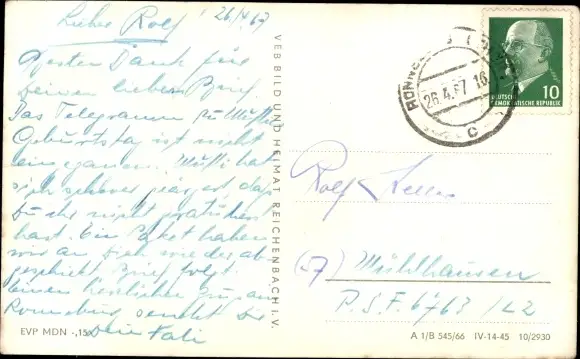 Lieber Rolf! 26/4.67
Besten Dank für
Deinen lieben Brief.
Das Telegramm zu Mutti's
Geburtstag ist nicht
eingegangen. Mutti hat
sich geärgert daß
Du ihr nicht gratuliert
hast. Ein Paket haben
wir an Dich wieder ab-
geschickt Brief folgt.
Einen herzlichen Gruß aus
Ronneburg sendet Dir
Dein Vati
EVP MDN -,15
VEB BILD UND HEIMAT REICHENBACH I. V.
RONNEBURG
26.4.67 16
C
10
DEUTSCHE
DEMOKRATISCHE REPUBLIK
Rolf
(57) Mühlhausen
P.S.F. 6763 / L2
A 1/B 545/66 IV-14-45 10/2930